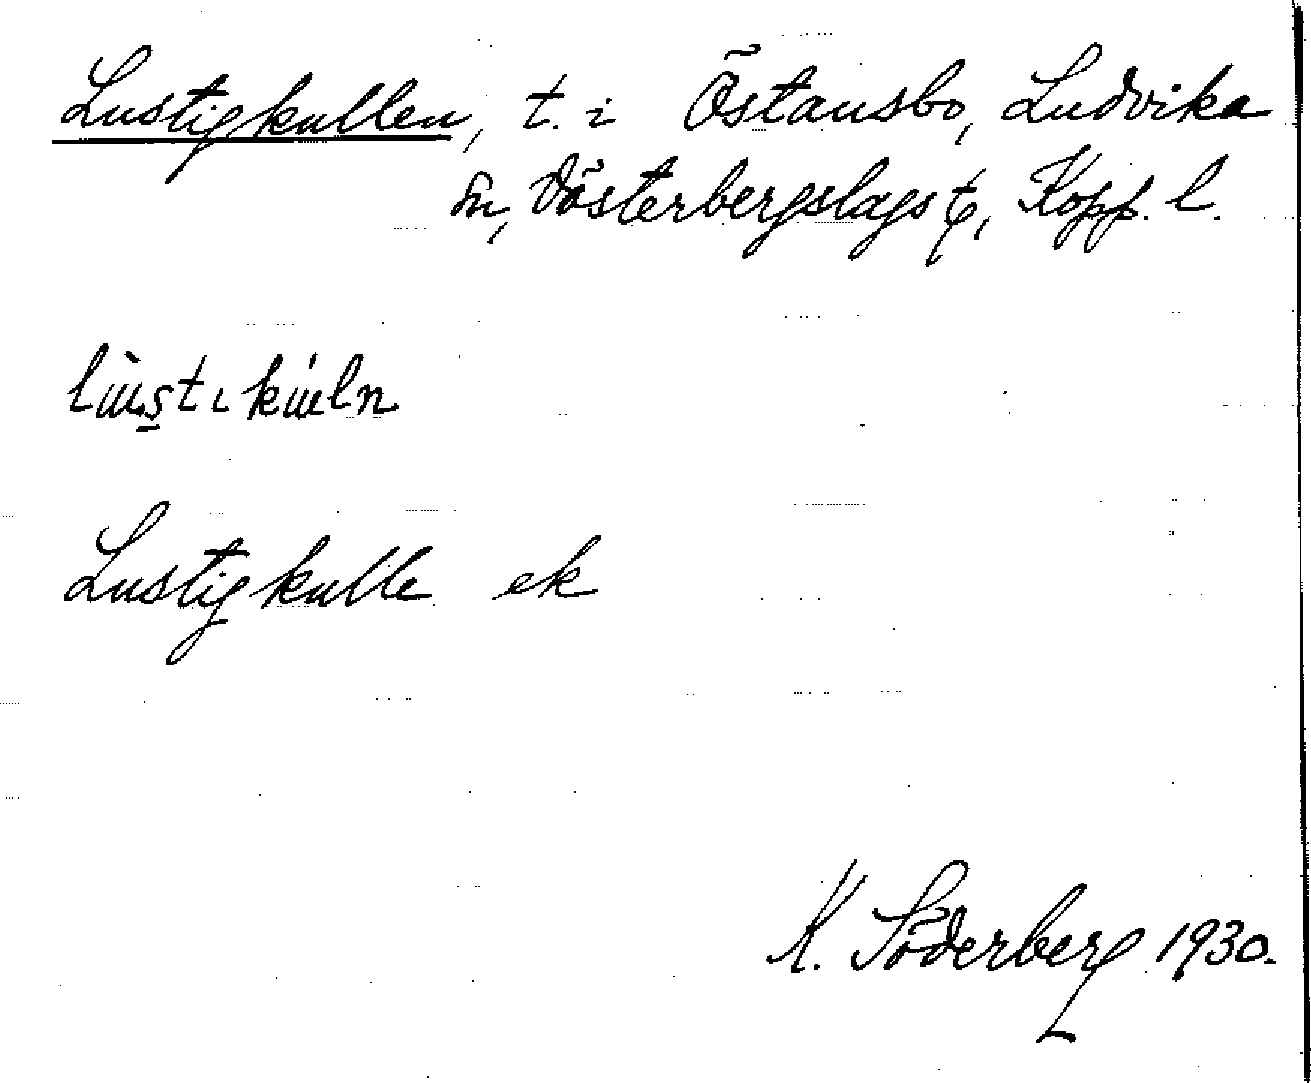 Lustigkullen, t. i Östansbo, Ludvika
sn, Västerbergslags t, Kopp. l.
Lustigkulle ek
K. Söderberg 1930.